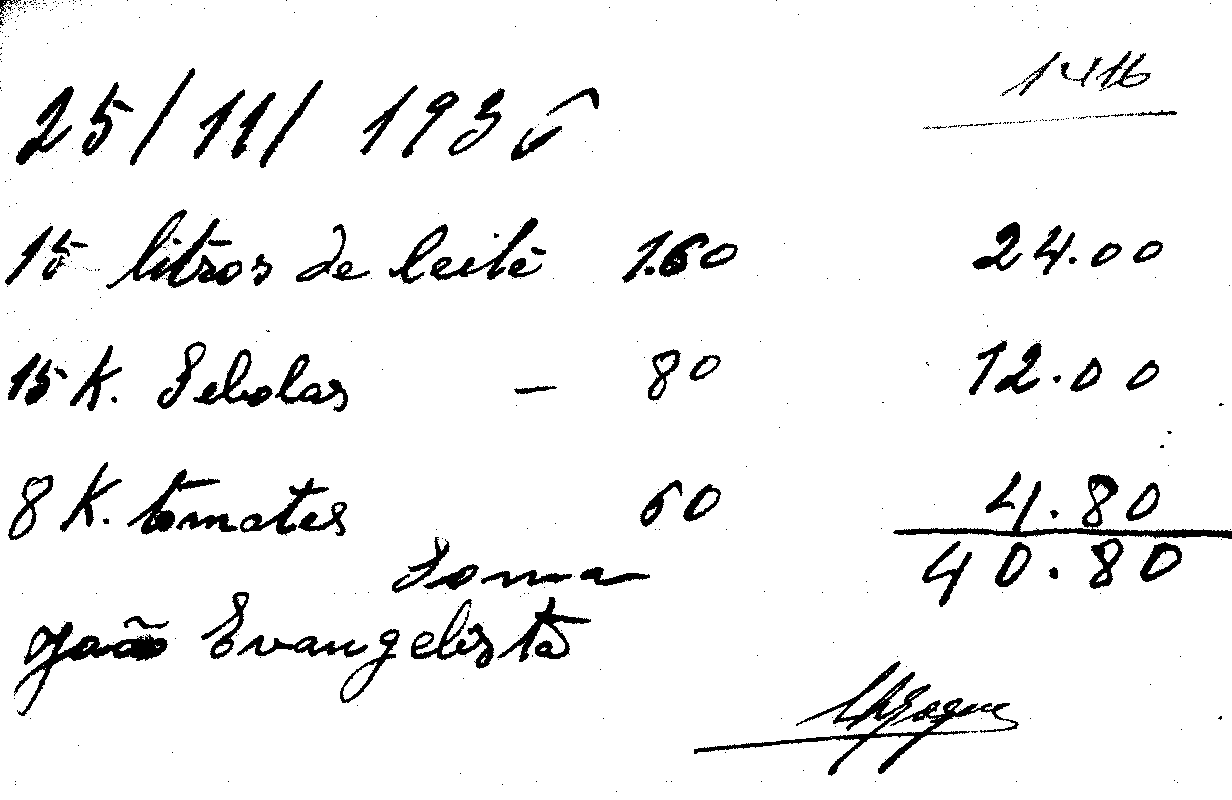 1416
25/11/1936
15 litros de leite 1.60 24.00
15 K. Sebolas — 80 12.00
8 K. tomates 60 4.80
Soma 40.80
João Evangelista